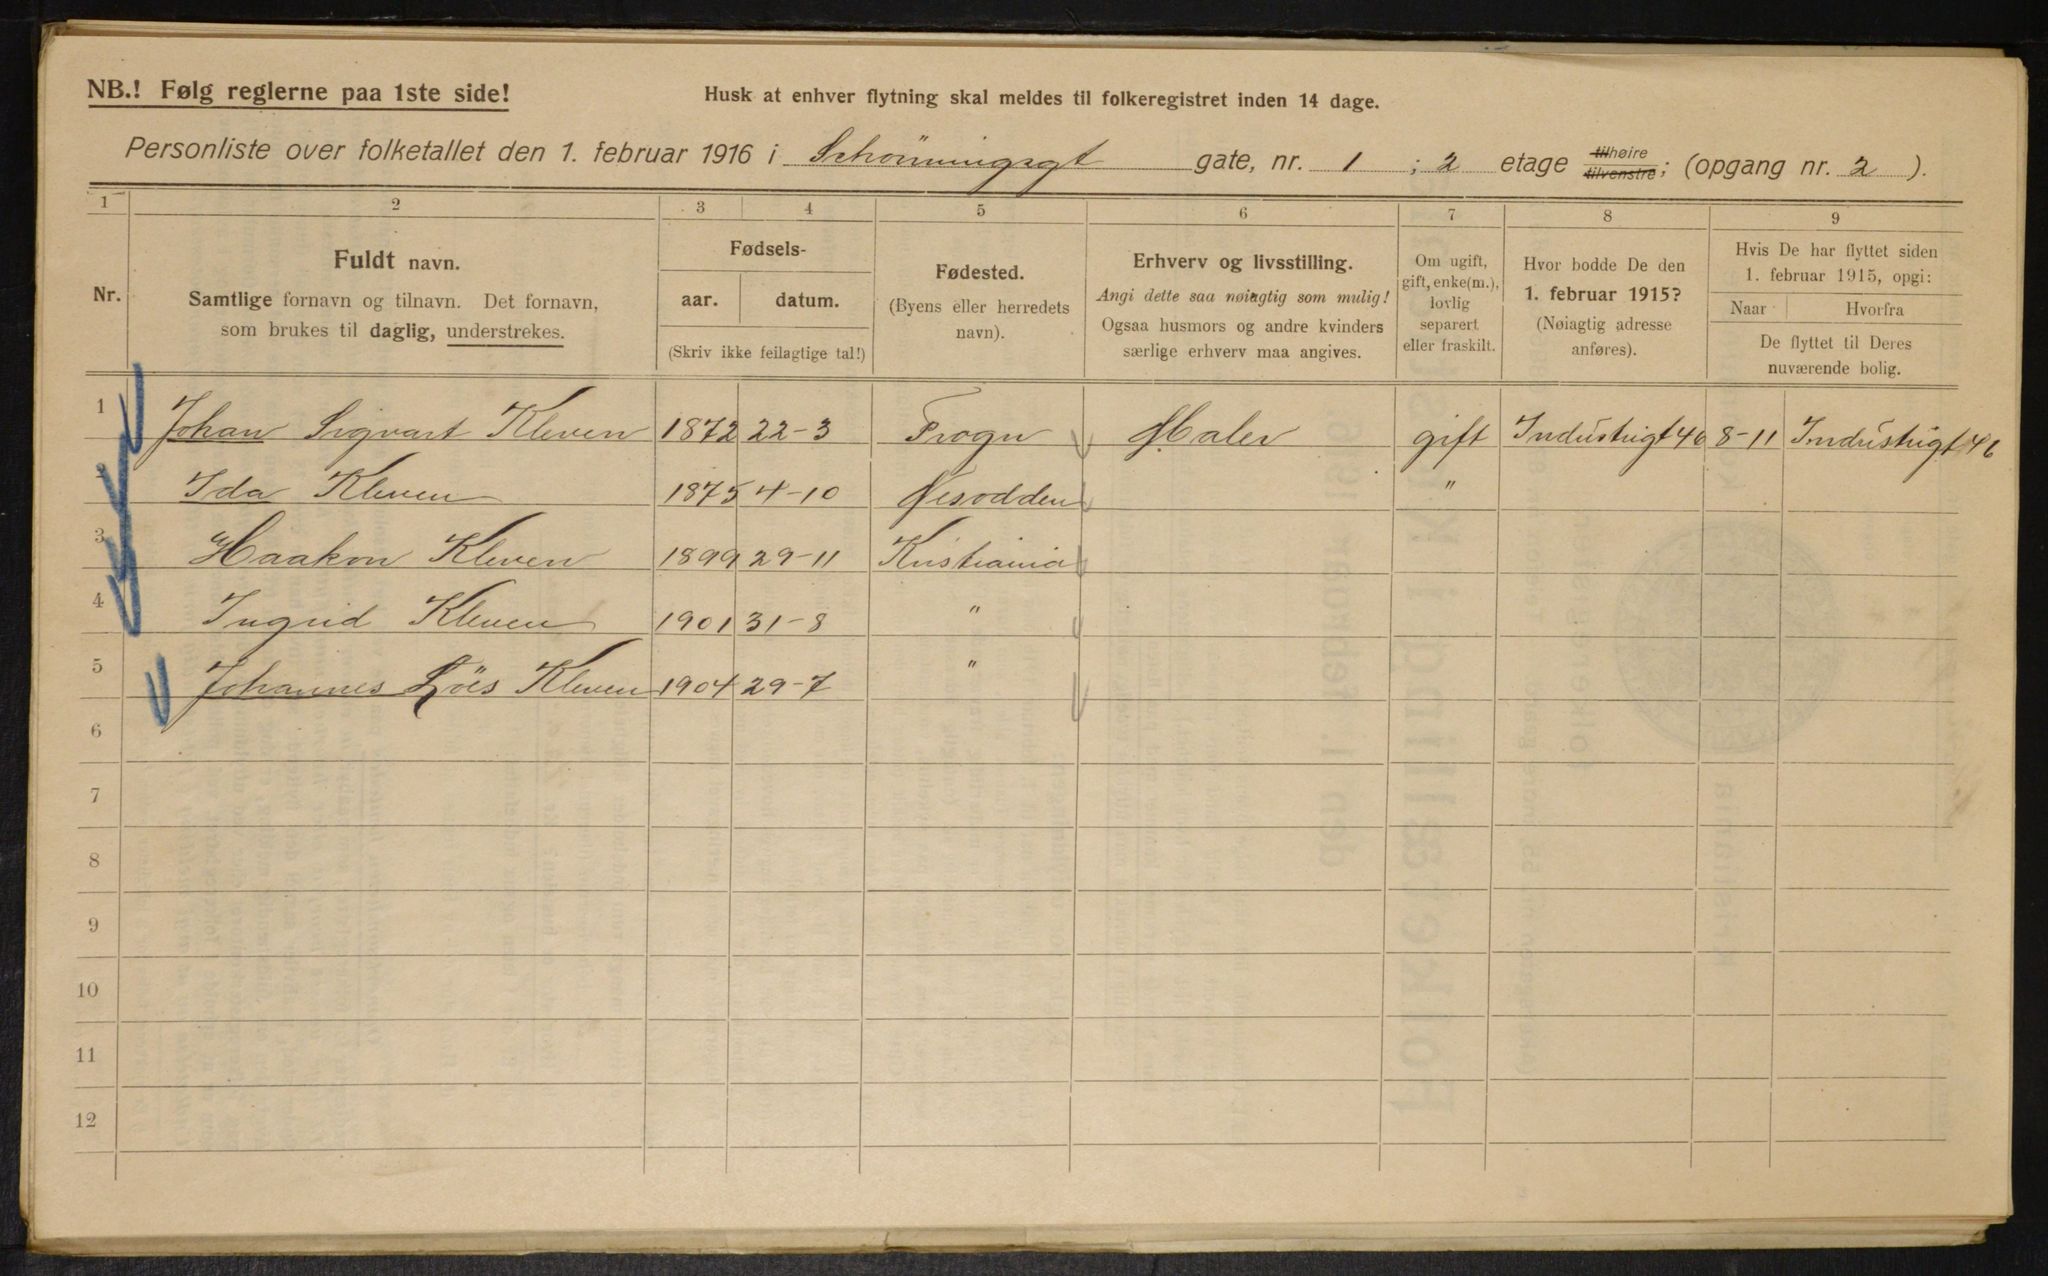 NB.! Følg reglerne paa 1ste side!
Husk at enhver flytning skal meldes til folkeregistret inden 14 dage.
Personliste over folketallet den 1. februar 1916 i Schönningsgt gate, nr. 1 ; 2 etage tilhøire tilvenstre ; (opgang nr. 2 ).
1 2 3 4 5 6 7 8 9
Nr.
Fuldt navn.
Samtlige fornavn og tilnavn. Det fornavn,
som brukes til daglig, understrekes.
Fødsels-
aar. datum.
(Skriv ikke feilagtige tal!)
Fødested.
(Byens eller herredets
navn).
Erhverv og livsstilling.
Angi dette saa nøiagtig som mulig!
Ogsaa husmors og andre kvinders
særlige erhverv maa angives.
Om ugift,
gift, enke(m.),
lovlig
separert
eller fraskilt.
Hvor bodde De den
1. februar 1915?
(Nøiagtig adresse
anføres).
Hvis De har flyttet siden
1. februar 1915, opgi:
Naar Hvorfra
De flyttet til Deres
nuværende bolig.
1 Johan Sigvart Kleven 1872 22-3 Frogn Maler gift Industrigt 46 8-11 Industrigt 46
Ida Kleven 1875 4-10 Nesodden "
3 Haakon Kleven 1899 29-11 Kristiania
4 Ingrid Kleven 1901 31-8 "
5 Johannes Kleven 1904 29-7 "
6
7
8
9
10
11
12